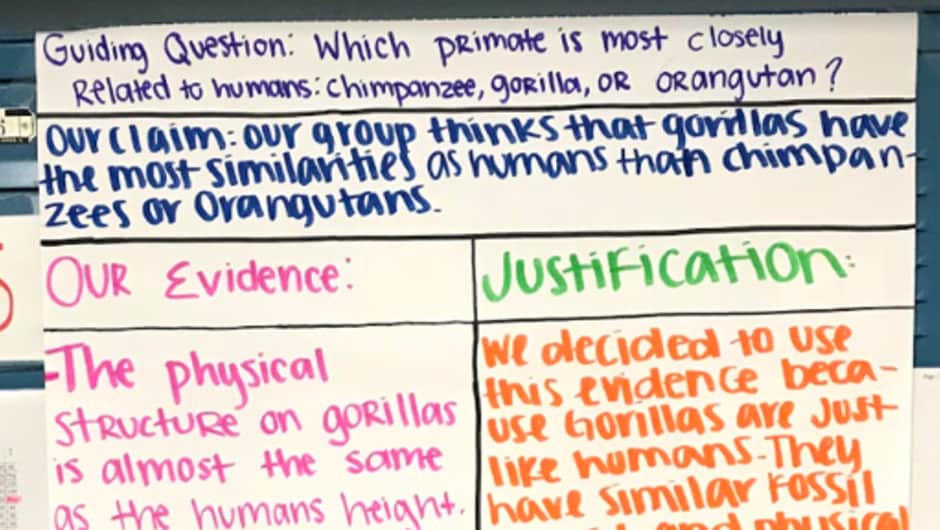 Guiding Question: Which primate is most closely
Related to humans: chimpanzee, gorilla, or orangutan?
Our claim: our group thinks that gorillas have
the most similarities as humans than chimpan-
zees or Orangutans.
Our Evidence:
-The physical
structure on gorillas
is almost the same
as the humans height.
Justification:
We decided to use
this evidence beca-
use Gorillas are Just
like humans. They
have similar Fossil
and physical